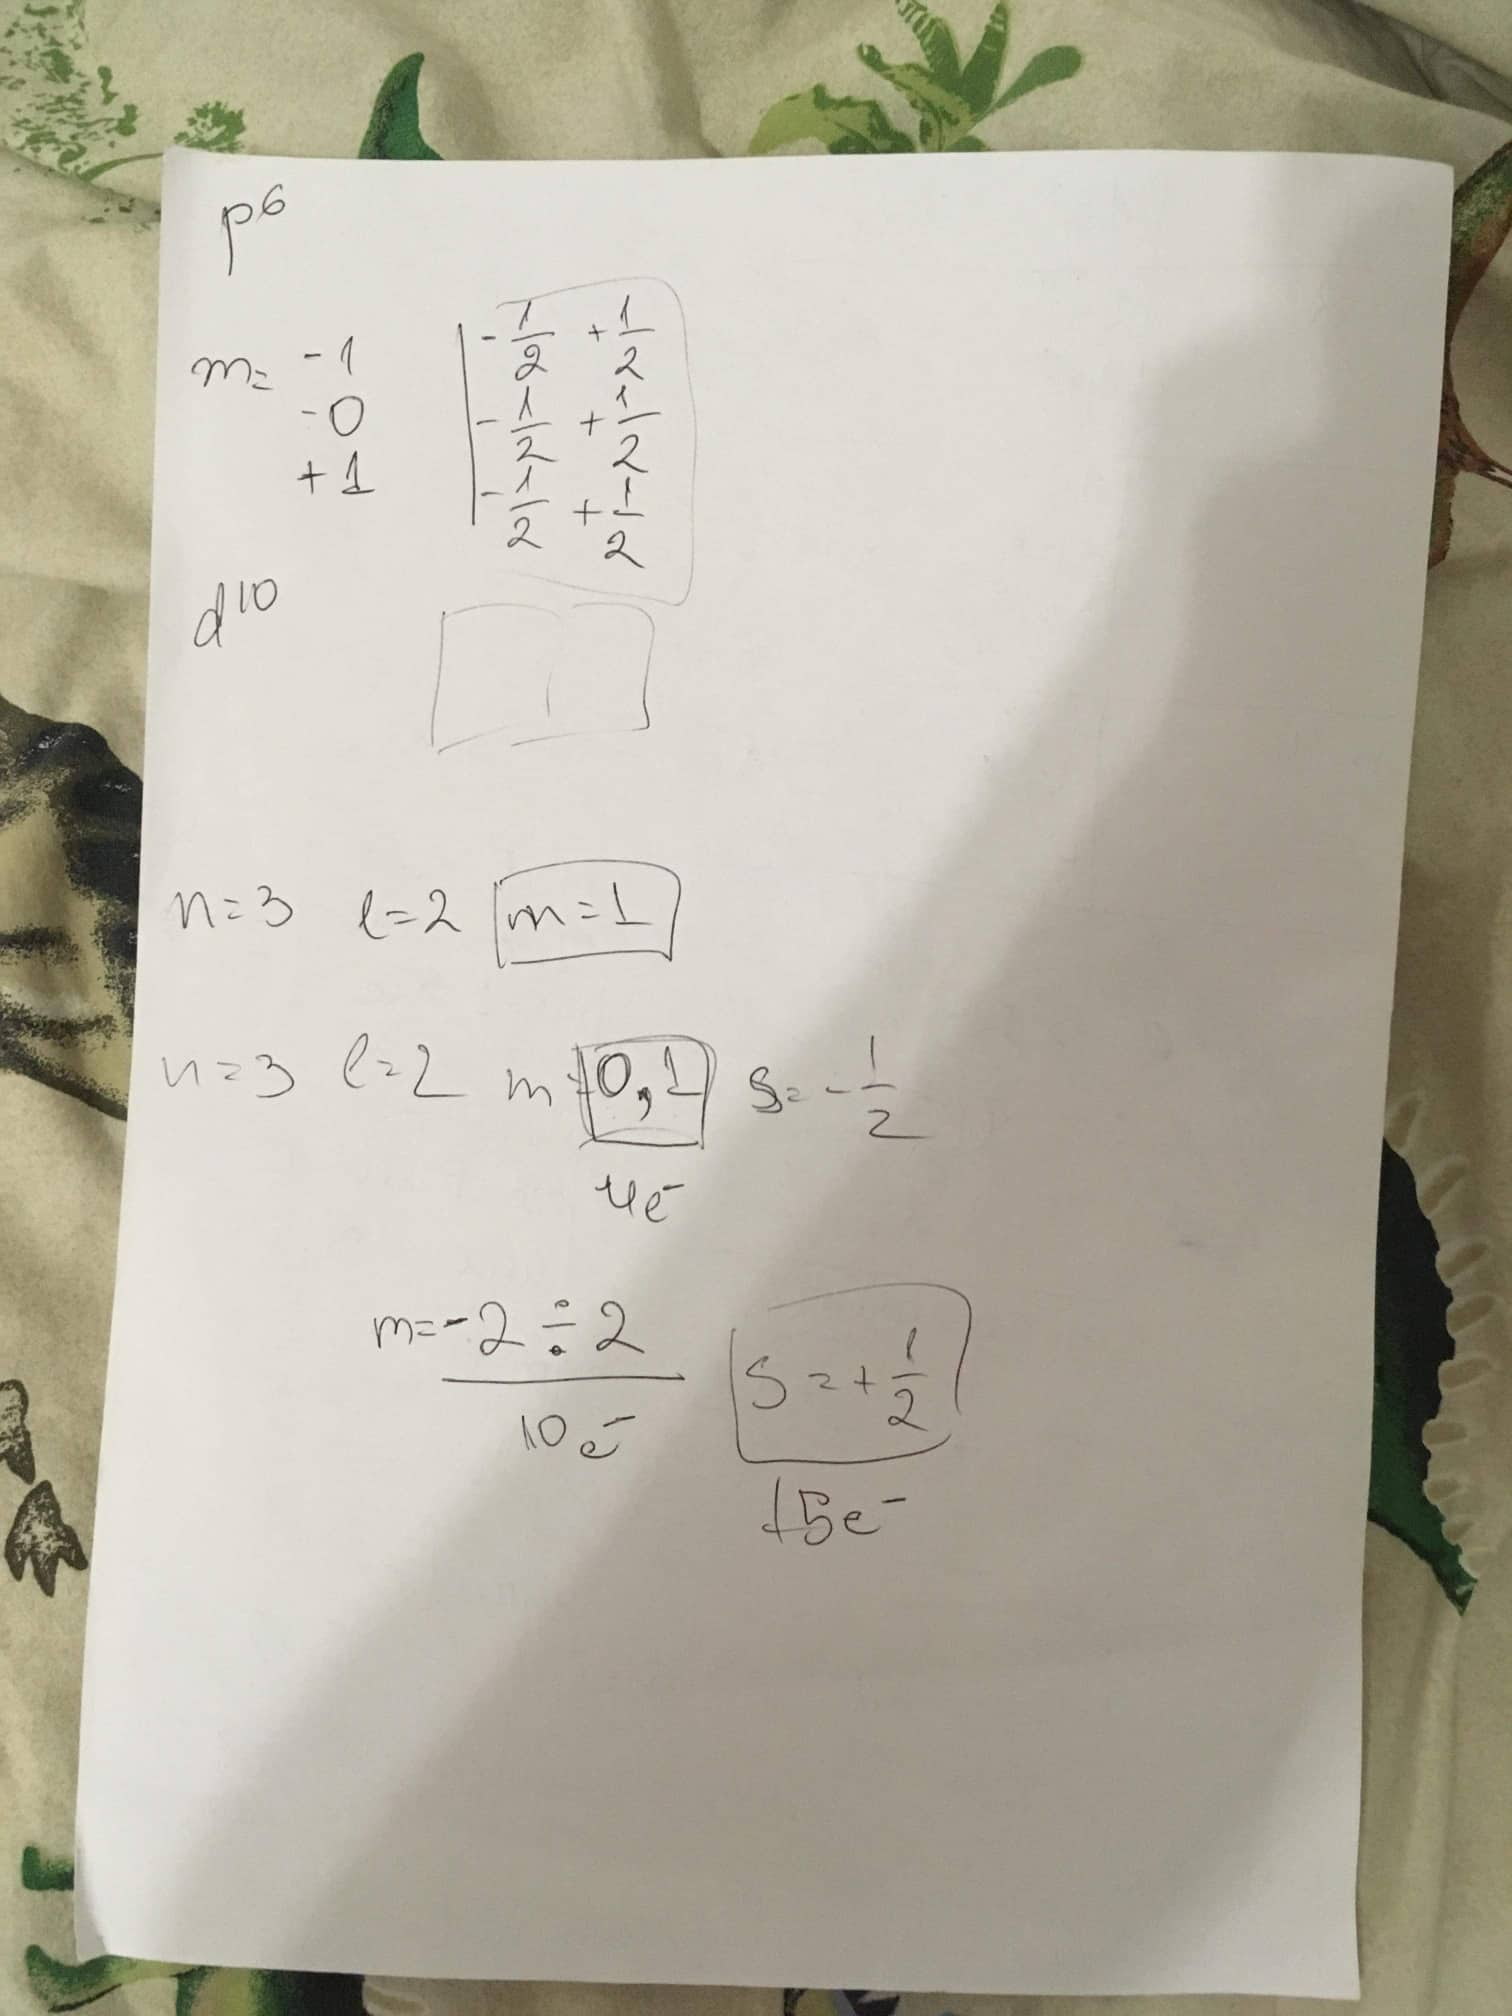 p⁶
m= -1 | -1/2 +1/2
-0 | -1/2 +1/2
+1 | -1/2 +1/2
d¹⁰
n=3 l=2 m=1
n=3 l=2 m=0,1 s=-1/2
4e⁻
m=-2÷2 s=+1/2
10e⁻
5e⁻